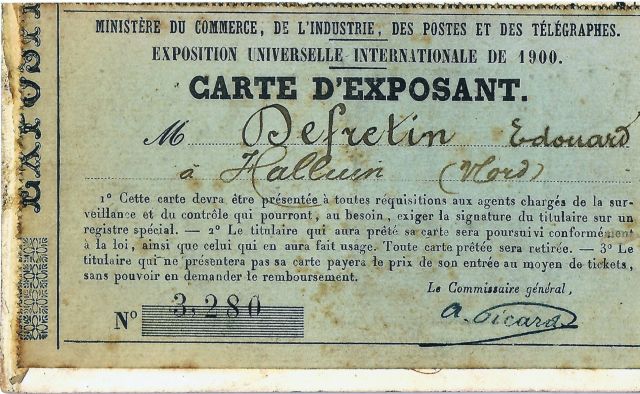 MINISTÈRE DU COMMERCE, DE L'INDUSTRIE, DES POSTES ET DES TÉLÉGRAPHES.
EXPOSITION UNIVERSELLE INTERNATIONALE DE 1900.
CARTE D'EXPOSANT.
M Defretin Edouard
à Halluin (Nord)
1° Cette carte devra être présentée à toutes réquisitions aux agents chargés de la sur-
veillance et du contrôle qui pourront, au besoin, exiger la signature du titulaire sur un
registre spécial. — 2° Le titulaire qui aura prêté sa carte sera poursuivi conformément
à la loi, ainsi que celui qui en aura fait usage. Toute carte prêtée sera retirée. — 3° Le
titulaire qui ne présentera pas sa carte payera le prix de son entrée au moyen de tickets,
sans pouvoir en demander le remboursement.
Le Commissaire général,
N° 3.280
A. Picard